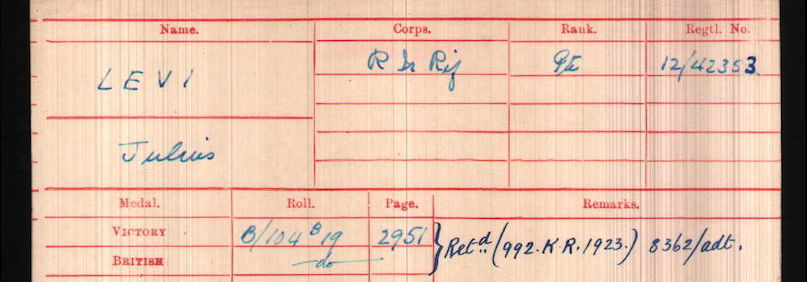 Name. Corps. Rank. Regtl. No.
LEVI R Ir Rif Pte 12/42353
Julius
Medal. Roll. Page. Remarks.
VICTORY B/104 B 19 2951 } Retd (992. K R. 1923.) 8362/adt.
BRITISH do